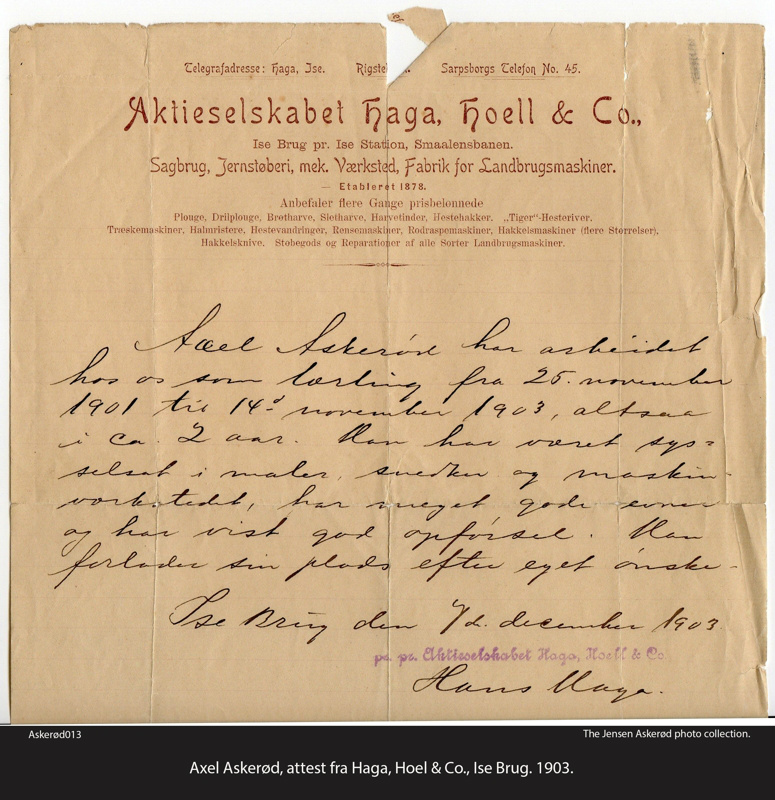 Telegrafadresse: Haga, Ise. Sarpsborgs Telefon No. 45.
Aktieselskabet Haga, Hoell & Co.,
Ise Brug pr. Ise Station, Smaalensbanen.
Sagbrug, Jernstøberi, mek. Værksted, Fabrik for Landbrugsmaskiner.
— Etableret 1878.
Anbefaler flere Gange prisbelønnede
Plouge, Drilplouge, Brøtharve, Sletharve, Harvetinder, Hestehakker, „Tiger“-Hesteriver,
Træskemaskiner, Halmristere, Hestevandringer, Rensemaskiner, Rodraspemaskiner, Hakkelsmaskiner (flere Størrelser),
Hakkelsknive. Støbegods og Reparationer af alle Sorter Landbrugsmaskiner.
Axel Askerød har arbeidet
hos os som lærling fra 25. november
1901 til 14d november 1903, altsaa
i ca. 2 aar. Han har været sys=
selsat i maler, snedker og maskin-
værkstedet, har meget gode evner
og har vist god opførsel. Han
forlader sin plads efter eget ønske-
Ise Brug den december 1903.
pr. pr. Aktieselskabet Haga, Hoell & Co.
Hans Haga.
Askerød013 The Jensen Askerød photo collection.
Axel Askerød, attest fra Haga, Hoel & Co., Ise Brug. 1903.